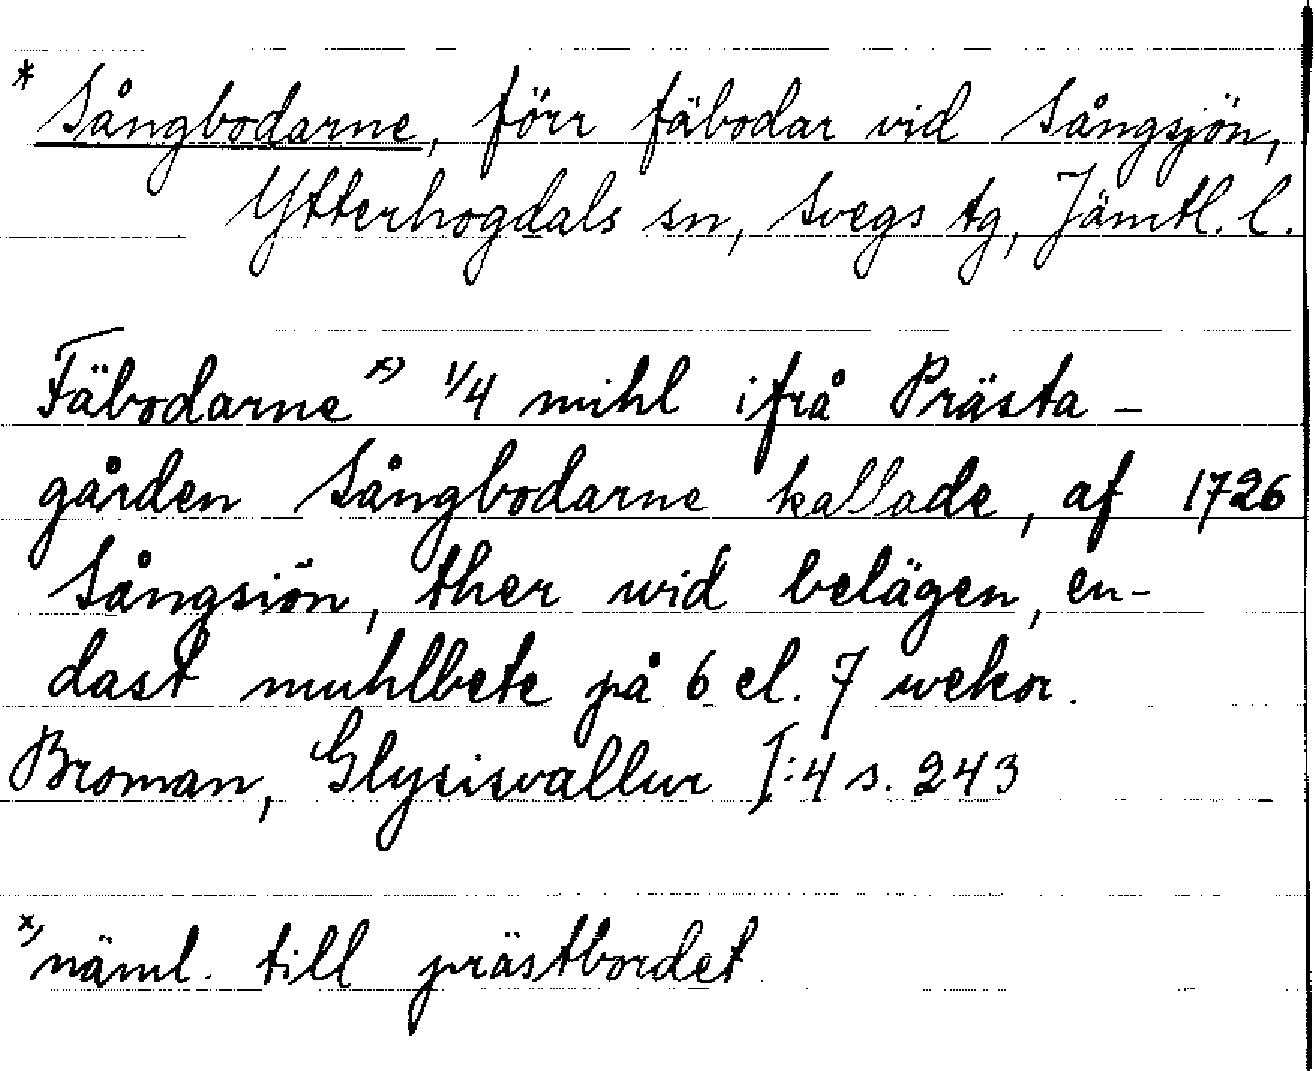 * Sångbodarne, förr fäbodar vid Sångsjön,
Ytterhogdals sn, Svegs tg, Jämtl. l.
Fäbodarne x) 1/4 mihl ifrå Prästa-
gården Sångbodarne kallade, af 1726
Sångsiön, ther wid belägen, en-
dast muhlbete på 6 el. 7 wekor.
Broman, Glysisvallur I:4 s. 243
x) näml. till prästbordet